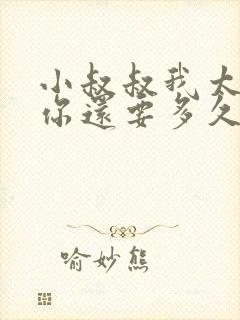 小叔叔我大
你還要多久
喻妙熊